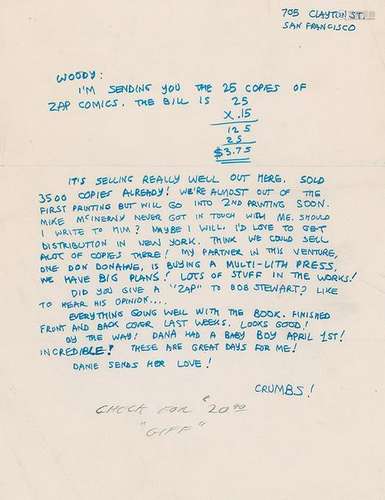 705 CLAYTON ST.
SAN FRANCISCO
WOODY:
I'M SENDING YOU THE 25 COPIES OF
ZAP COMICS. THE BILL IS 25
X .15
125
25
$3.75
IT'S SELLING REALLY WELL OUT HERE. SOLD
3500 COPIES ALREADY! WE'RE ALMOST OUT OF THE
FIRST PRINTING BUT WILL GO INTO 2ND PRINTING SOON.
MIKE MCINERNY NEVER GOT IN TOUCH WITH ME. SHOULD
I WRITE TO HIM? MAYBE I WILL. I'D LOVE TO GET
DISTRIBUTION IN NEW YORK. THINK WE COULD SELL
ALOT OF COPIES THERE! MY PARTNER IN THIS VENTURE,
ONE DON DONAHUE, IS BUYING A MULTI-LITH PRESS.
WE HAVE BIG PLANS! LOTS OF STUFF IN THE WORKS!
DID YOU GIVE A "ZAP" TO BOB STEWART? LIKE
TO HEAR HIS OPINION....
EVERYTHING GOING WELL WITH THE BOOK. FINISHED
FRONT AND BACK COVER LAST WEEKS. LOOKS GOOD!
BY THE WAY! DANA HAD A BABY BOY APRIL 1ST!
INCREDIBLE! THESE ARE GREAT DAYS FOR ME!
DANIE SENDS HER LOVE!
CRUMBS!
CHECK FOR $20.00
"GIFF"